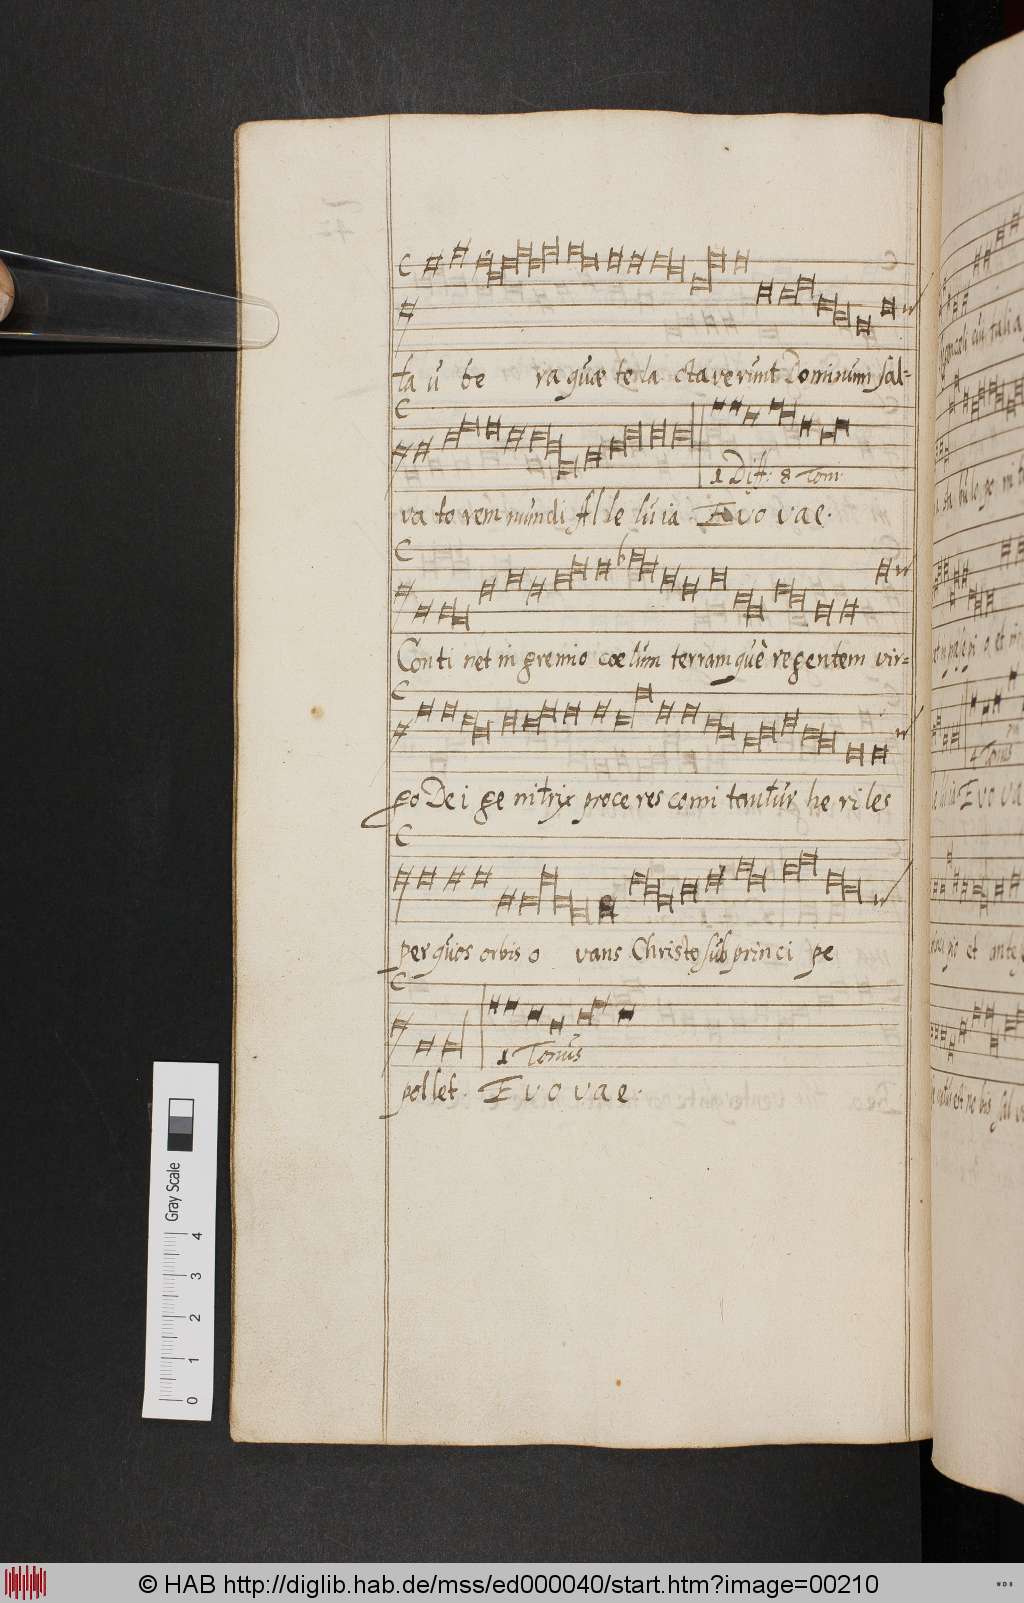 ta u be ra quæ te la ctaverunt Dominum sal-
1 Diff: 8 Toni
va to rem mundi Al le lu ia. Evovae.
Conti net in gremio cœlum terramquè regentem vir-
go De i ge nitrix proce res comi tantur he ri les
per quos orbis o vans Christo sub princi pe
1 Tonus
pollet. Evovae.
Gray Scale
0 1 2 3 4
© HAB http://diglib.hab.de/mss/ed000040/start.htm?image=00210